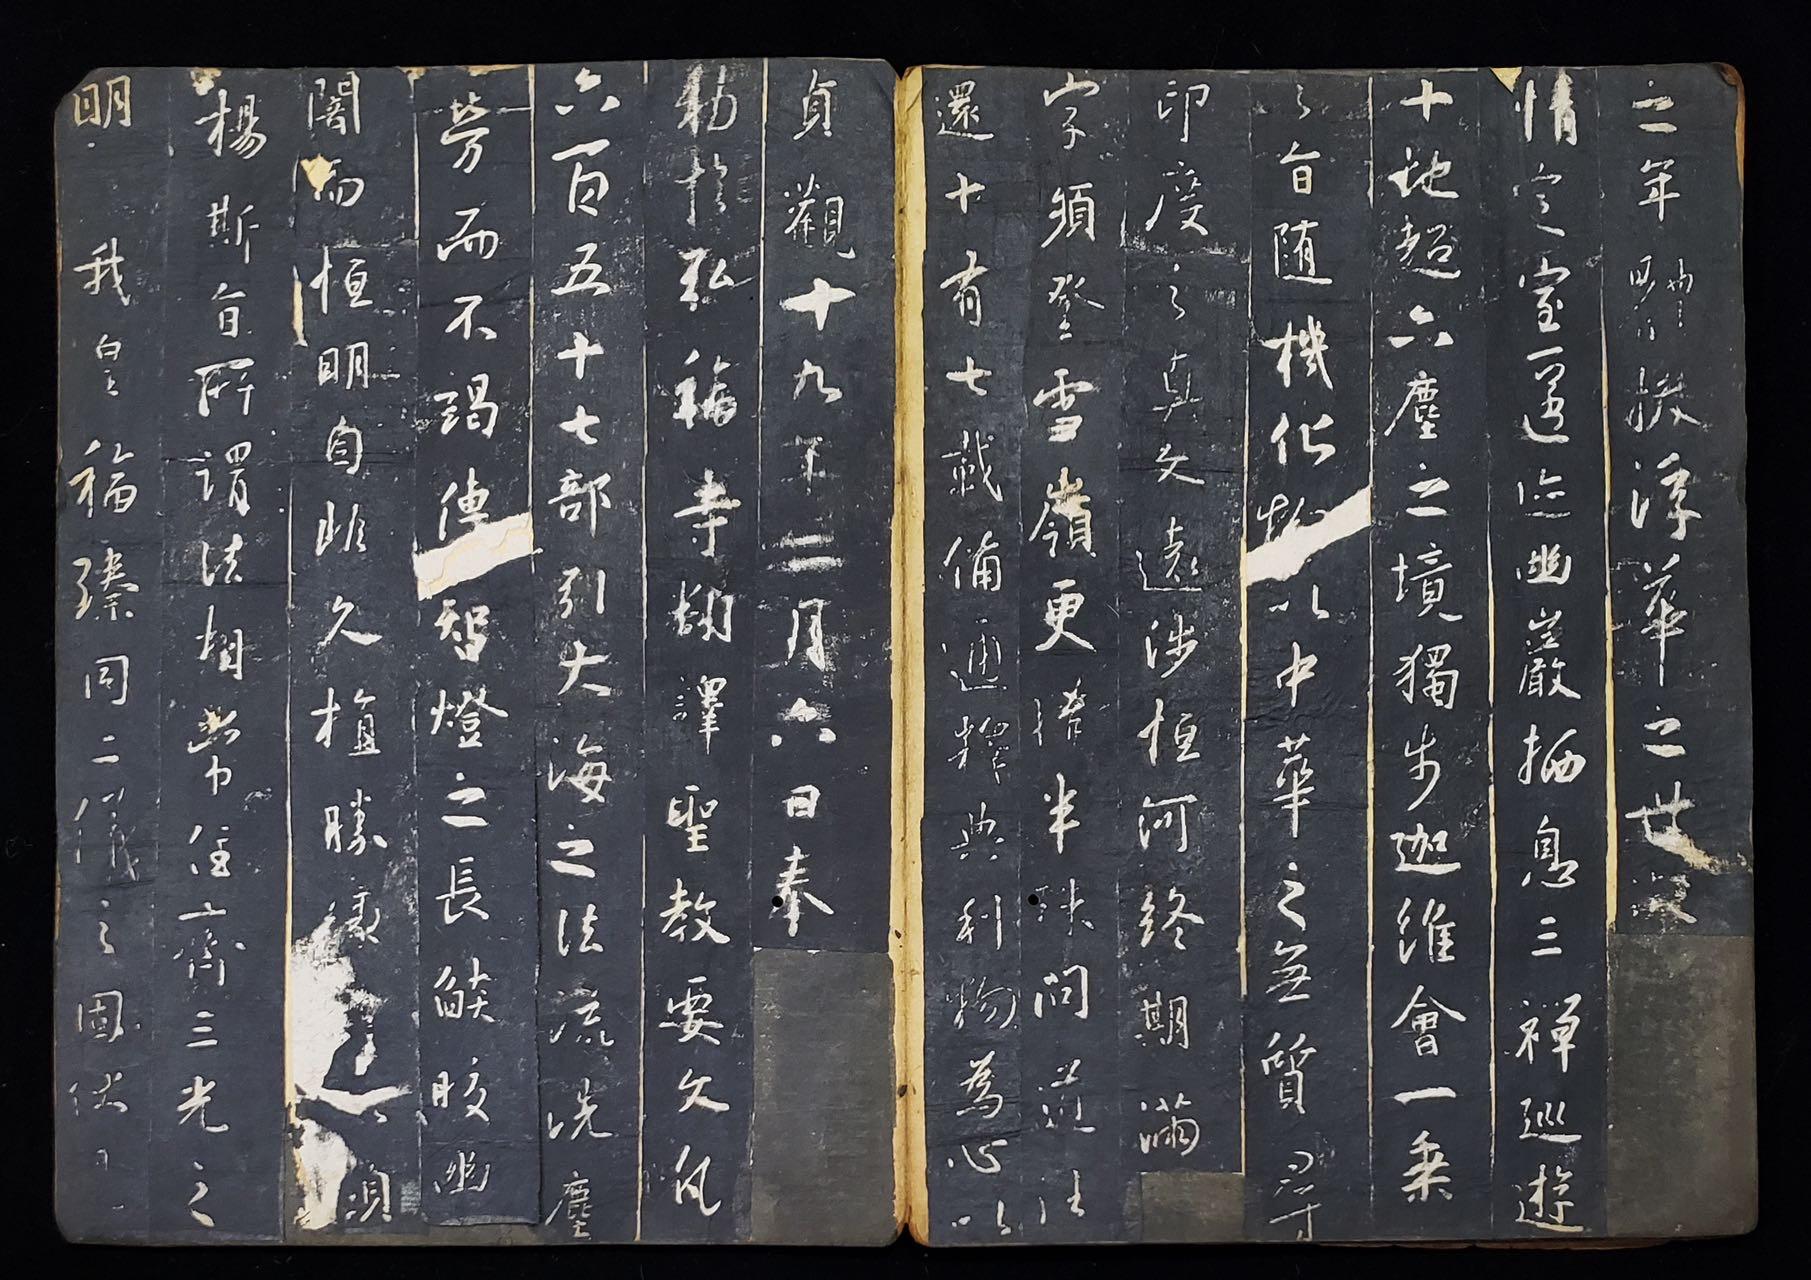 之年拔浮華之世凝
情定室匿迹幽巖栖息三禪巡遊
十地超六塵之境獨步迦維會一乘
之旨随機化物以中華之無質尋
印度之真文遠涉恒河終期滿
字頻登雪嶺更獲半珠問道往
還十有七載備通釋典利物為心以
貞觀十九年二月六日奉
勅於弘福寺翻譯聖教要文凡
六百五十七部引大海之法流洗塵
勞而不竭傳智燈之長皎幽
闇而恒明自非久植勝緣以顯
揚斯旨所謂法相常住齊三光之
明我皇福臻同二儀之固伏見